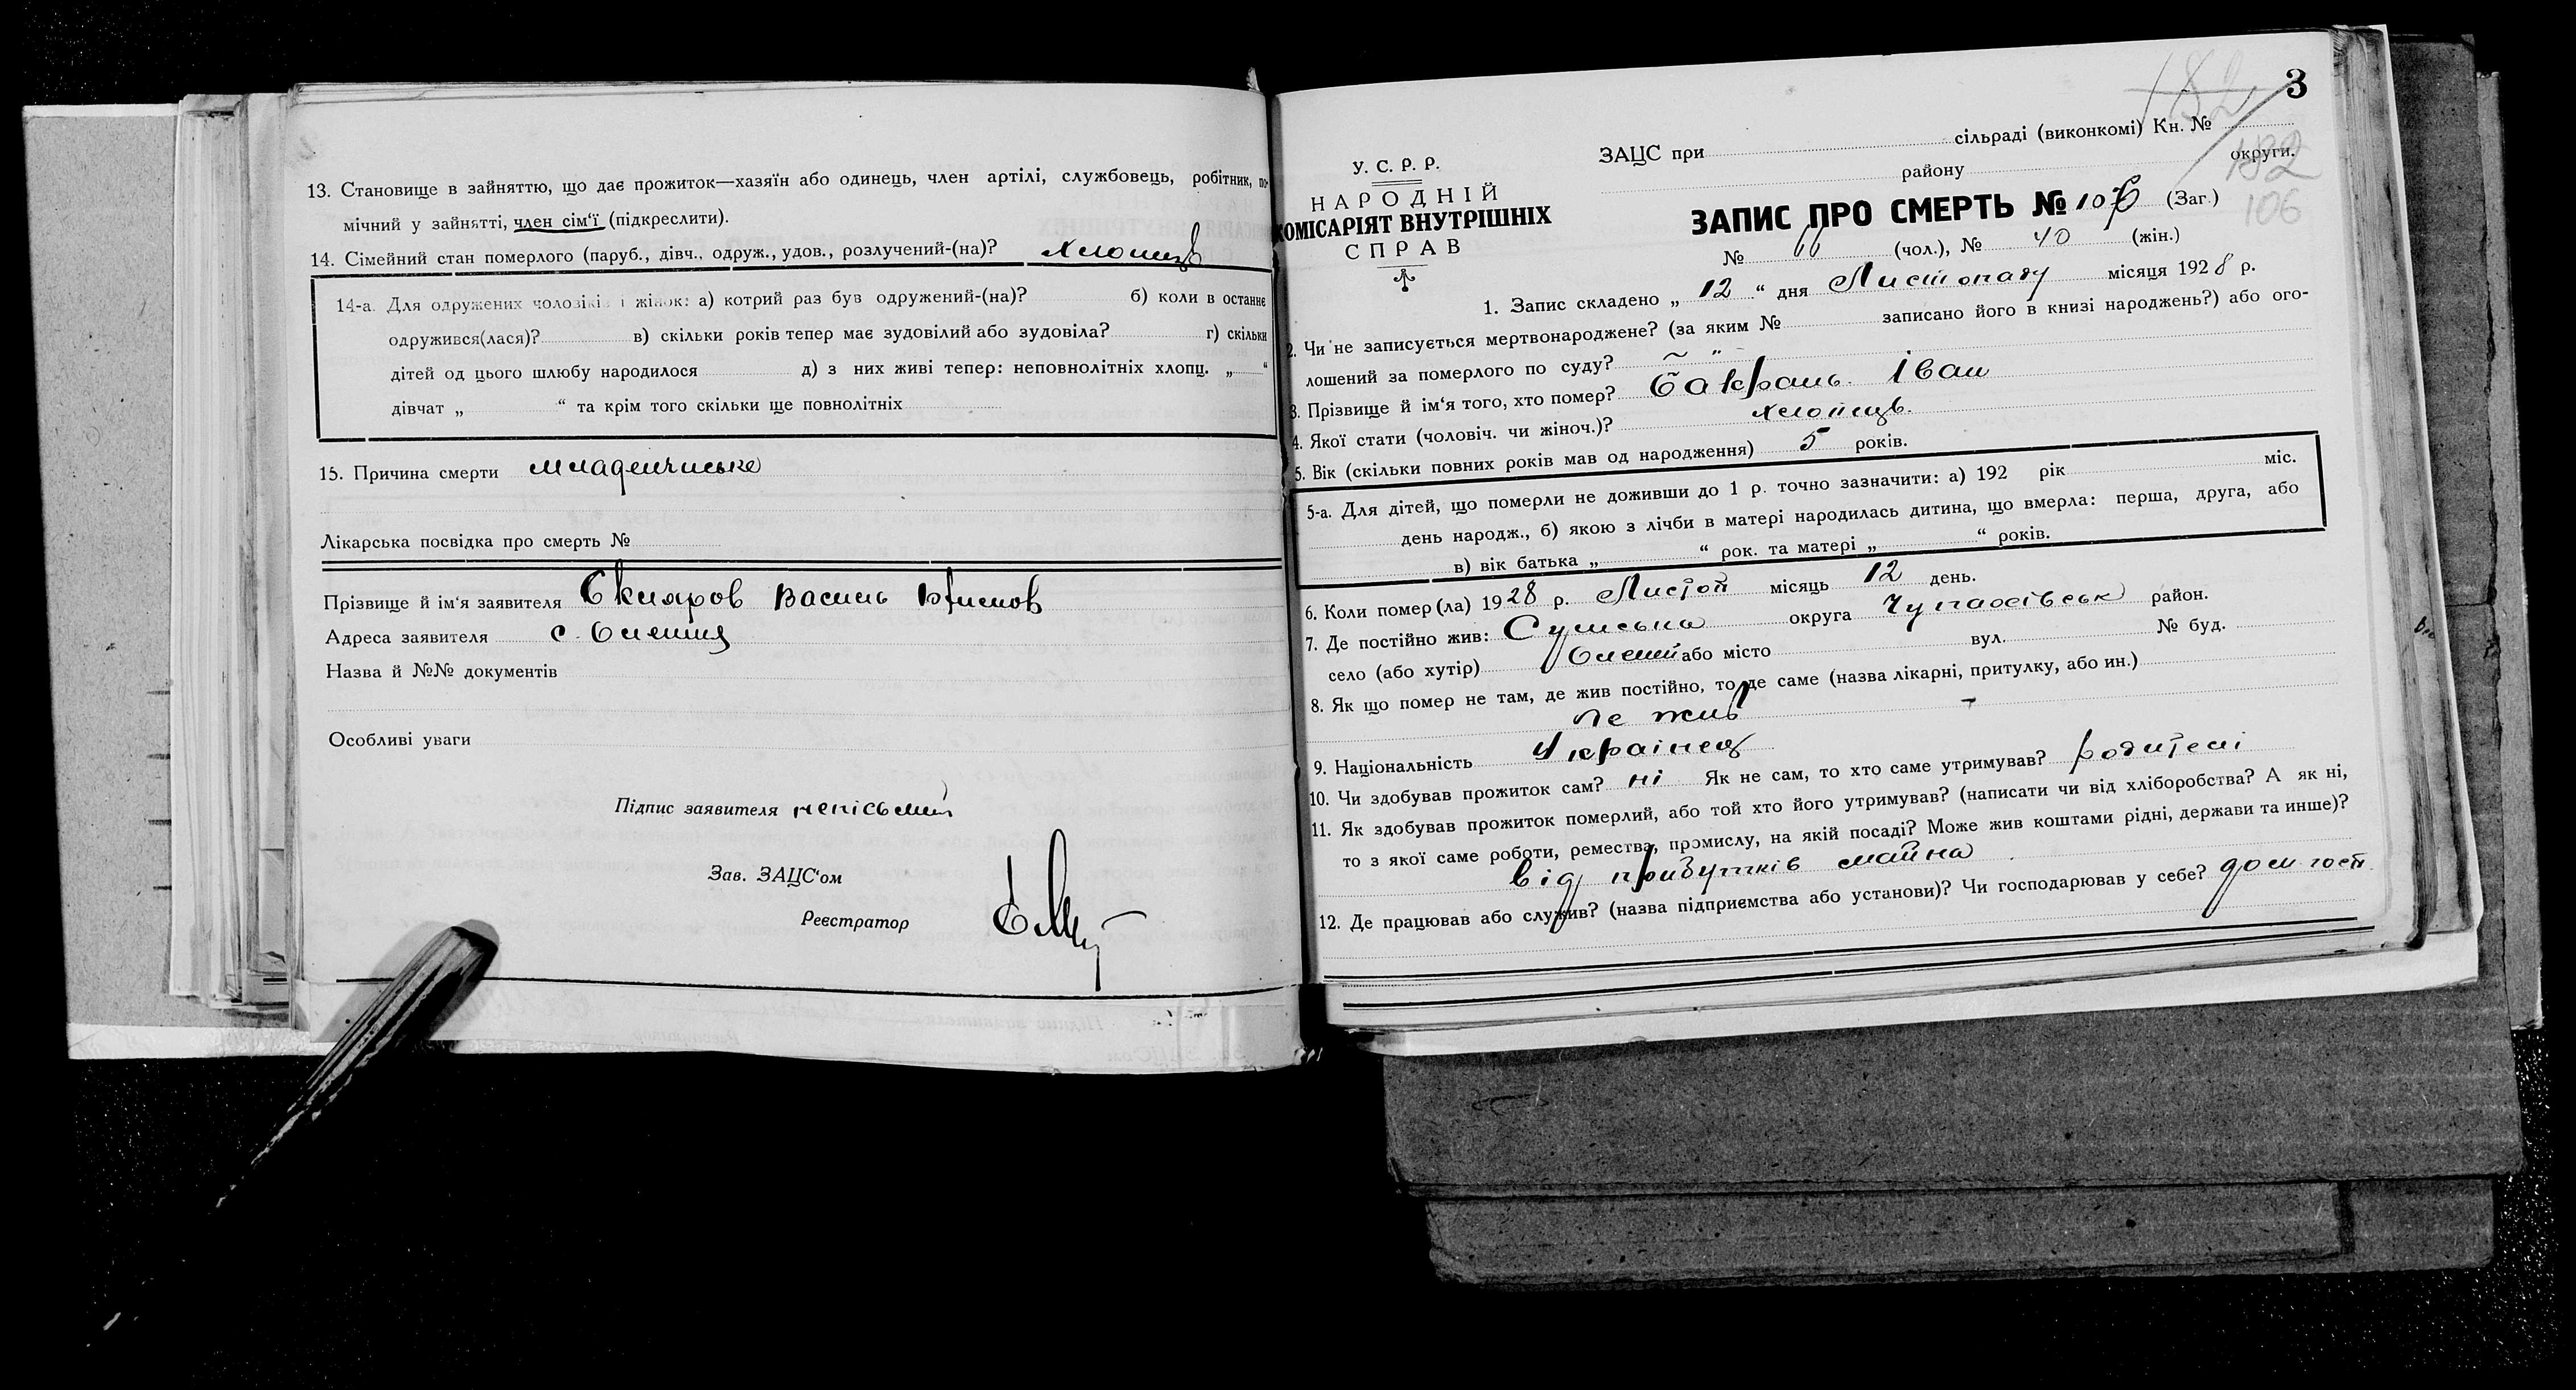 13. Становище в зайняттю, що дає прожиток—хазяїн або одинець, член артілі, службовець, робітник, по-
мічний у зайнятті, член сім'ї (підкреслити).
14. Сімейний стан померлого (паруб., дівч., одруж., удов., розлучений-(на)? хлопець
14-а. Для одружених чоловіків і жінок: а) котрий раз був одружений-(на)? б) коли в останнє
одружився(лася)? в) скільки років тепер має зудовілий або зудовіла? г) скільки
дітей од цього шлюбу народилося д) з них живі тепер: неповнолітніх хлопц. „ “
дівчат „ “ та крім того скільки ще повнолітніх
15. Причина смерти младенчиське
Лікарська посвідка про смерть №
Прізвище й ім'я заявителя Скляров Василь
Адреса заявителя с.
Назва й №№ документів
Особливі уваги
Підпис заявителя неписьмен
Зав. ЗАЦС'ом
Реєстратор
3
182
106
У. С. Р. Р.
НАРОДНІЙ
КОМІСАРІЯТ ВНУТРІШНІХ
СПРАВ
ЗАЦС при сільраді (виконкомі) Кн. №
району округи.
ЗАПИС ПРО СМЕРТЬ № 106 (Заг.)
№ 66 (чол.), № 40 (жін.)
1. Запис складено „ 12 “ дня Листопаду місяця 1928 р.
2. Чи не записується мертвонароджене? (за яким № записано його в книзі народжень?) або ого-
лошений за померлого по суду?
3. Прізвище й ім'я того, хто помер? Бакрань Іван
4. Якої стати (чоловіч. чи жіноч.)? хлопець.
5. Вік (скільки повних років мав од народження) 5 років.
5-а. Для дітей, що померли не доживши до 1 р. точно зазначити: а) 192 рік міс.
день народж., б) якою з лічби в матері народилась дитина, що вмерла: перша, друга, або
в) вік батька „ “ рок. та матері „ “ років.
6. Коли помер(ла) 1928 р. Листоп місяць 12 день.
7. Де постійно жив: Сумська округа район.
село (або хутір) або місто вул. № буд.
8. Як що помер не там, де жив постійно, то де саме (назва лікарні, притулку, або ин.)
де жив
9. Національність Українец
10. Чи здобував прожиток сам? ні Як не сам, то хто саме утримував? родителі
11. Як здобував прожиток померлий, або той хто його утримував? (написати чи від хліборобства? А як ні,
то з якої саме роботи, ремества, промислу, на якій посаді? Може жив коштами рідні, держави та инше)?
від прибутків майна
12. Де працював або служив? (назва підприємства або установи)? Чи господарював у себе? дом госп